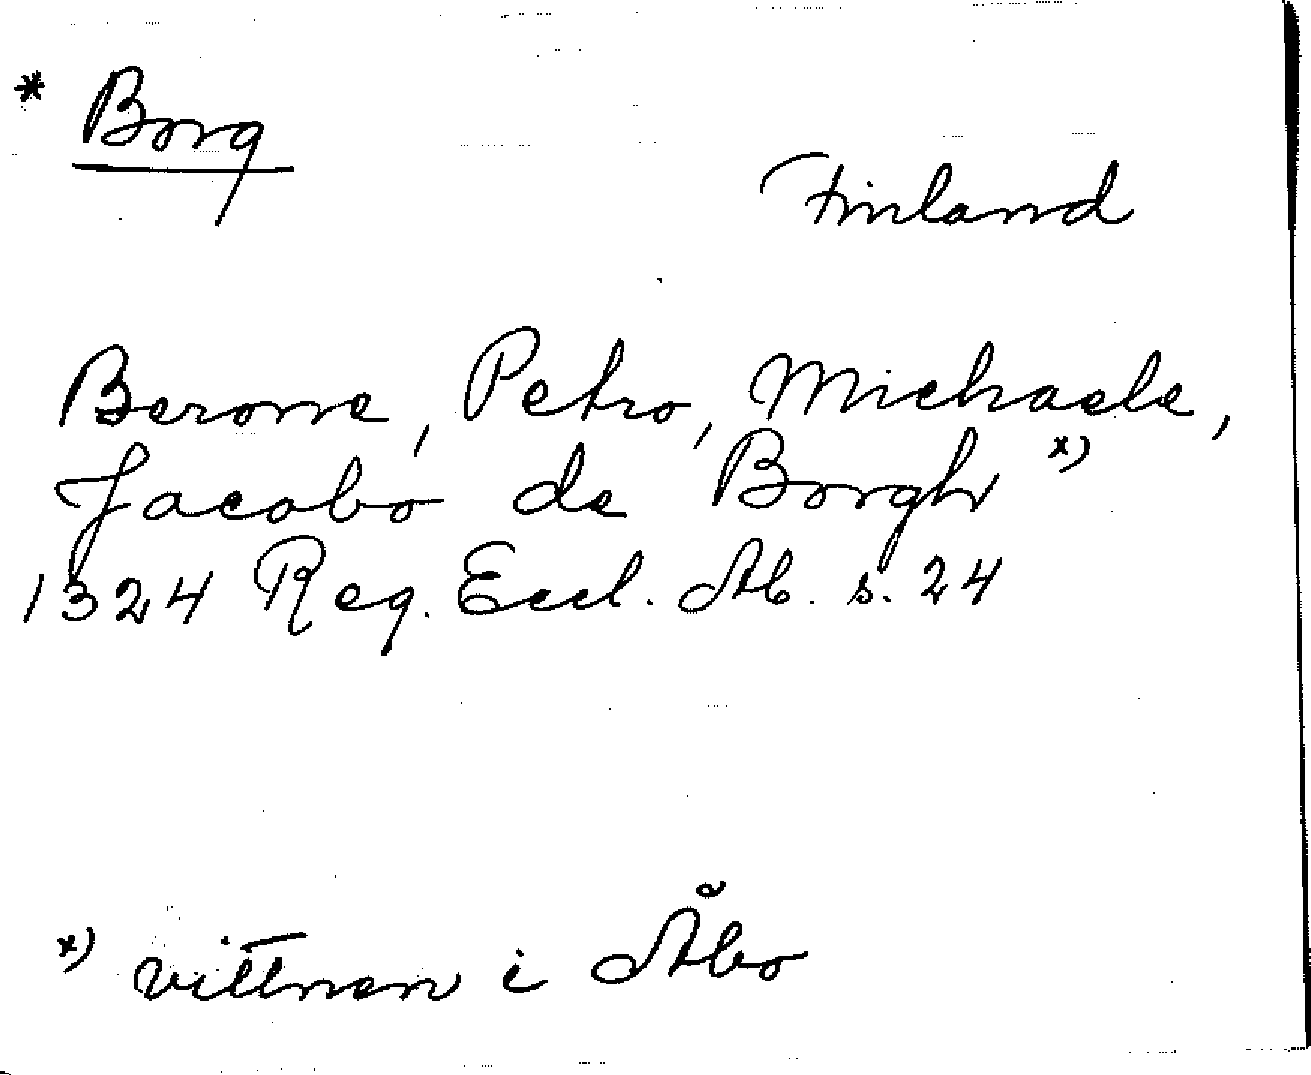 * Borg
Finland
Berone, Petro, Michaele,
Jacobo de Borgh x)
1324 Reg. Eccl. Ab. s. 24
x) vittnen i Åbo